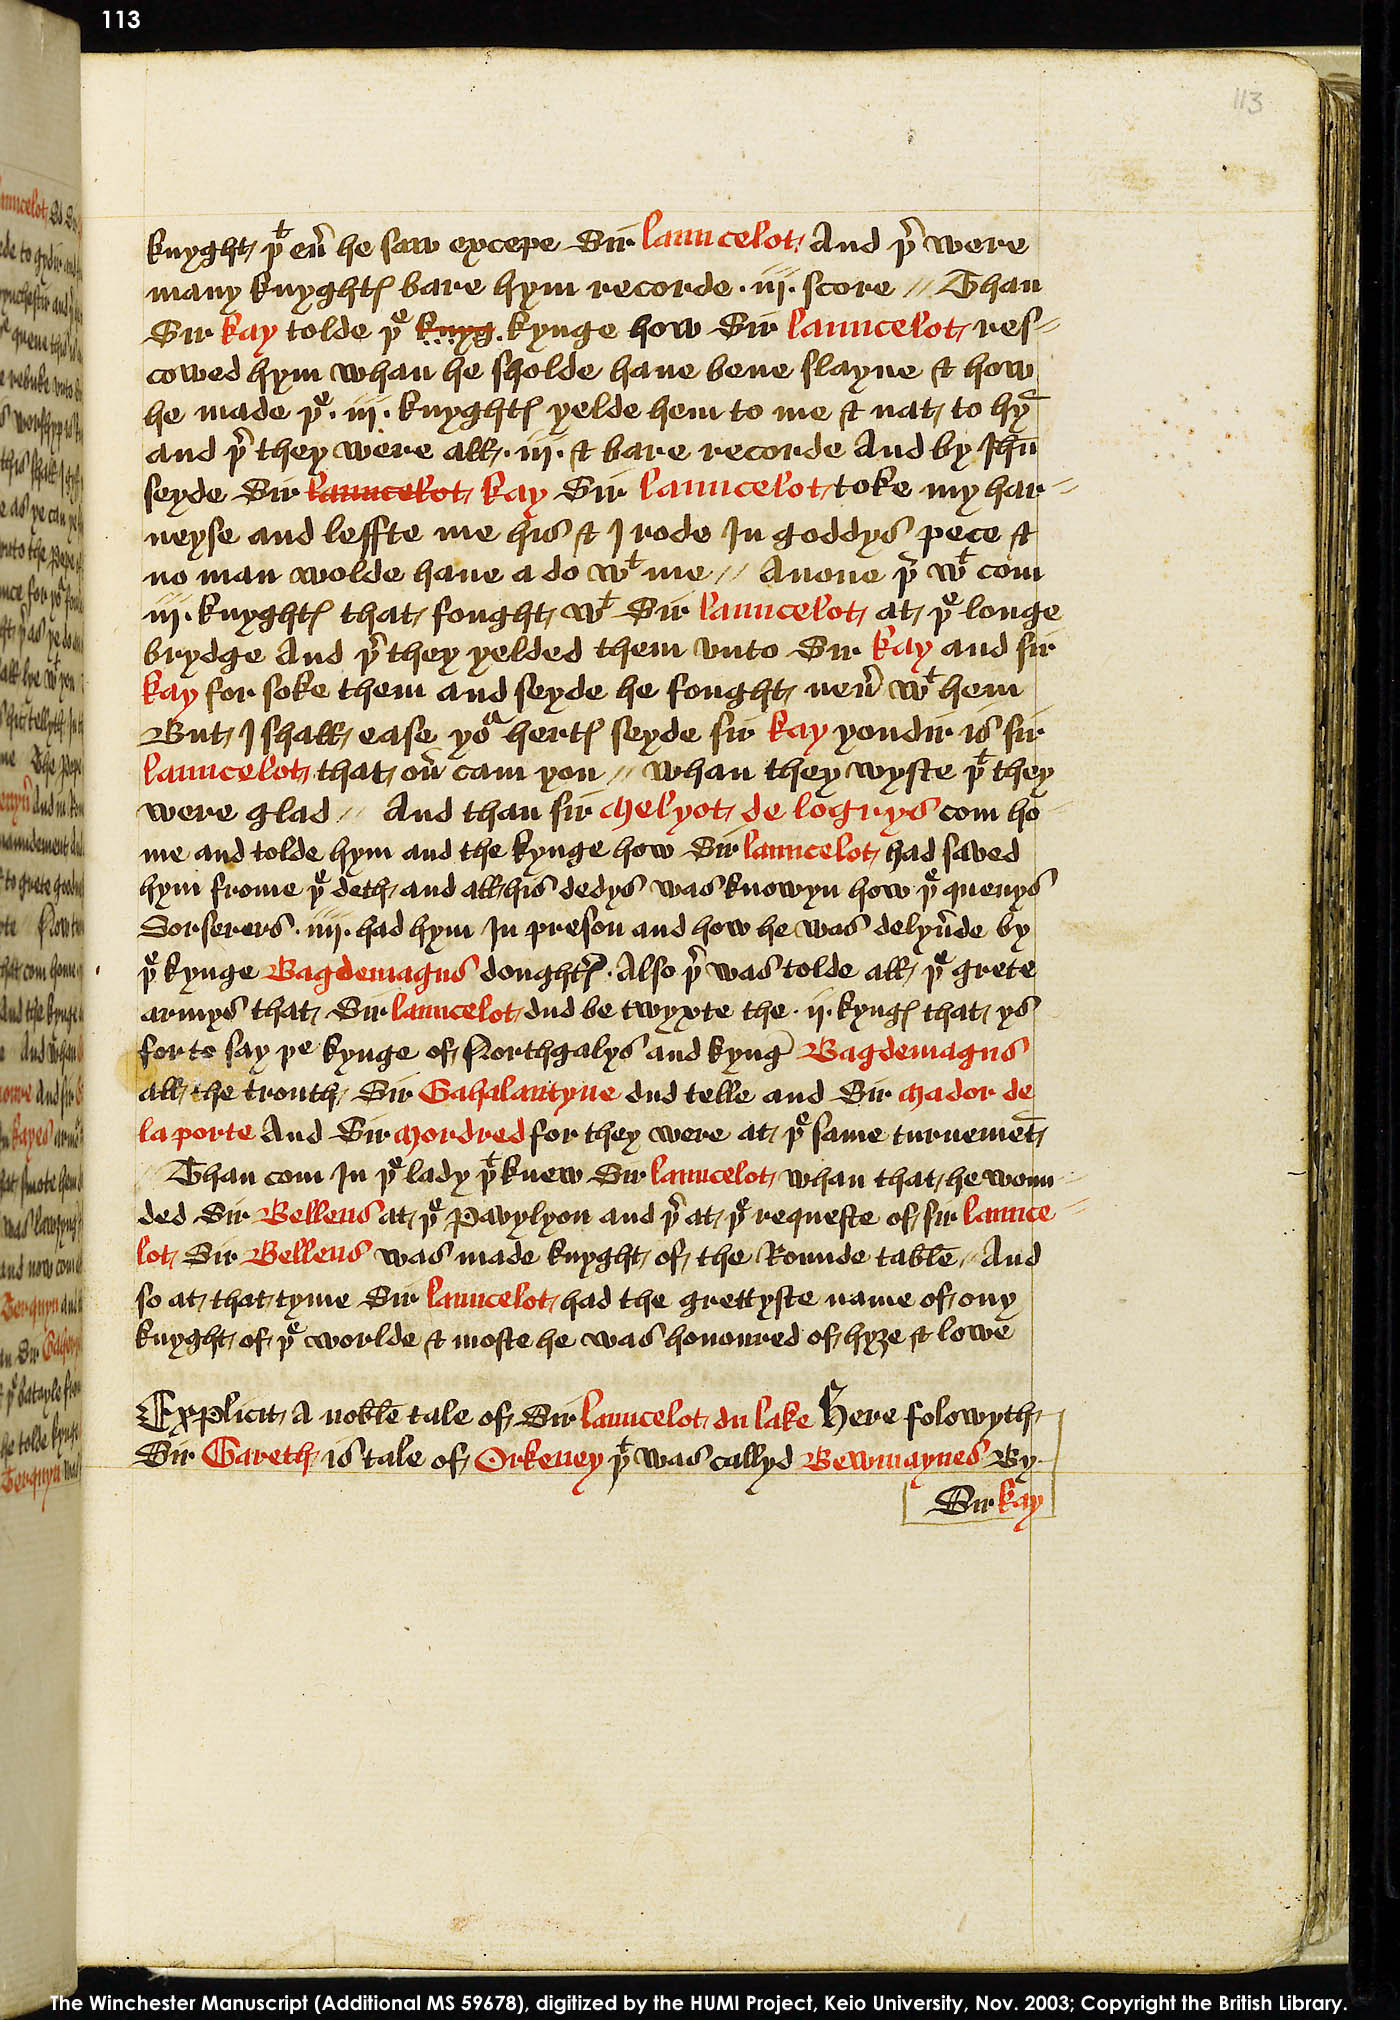 113
113
knyght þᵗ eu̅ he saw excepe Sir launcelot And þr̄ were
many knyghtꝭ bare hym recorde · iij · score // Than
Sir kay tolde þᵉ knyg kynge how Sir launcelot res=
cowed hym whan he sholde haue bene slayne & how
he made þᵉ · iij · knyghtꝭ yelde hem to me & nat to hȳ
and þr̄ they were all · iij · & bare recorde And by Jhu̅
seyde Sir launcelot kay Sir launcelot toke my har=
neyse and leffte me his & I rode In goddys pece &
no man wolde haue a do wᵗ me // Anone þr̄ wᵗ com
iij · knyghtꝭ that fought wᵗ Sir launcelot at þᵉ longe
brydge And þr̄ they yelded them vnto Sir kay and sir
kay for soke them and seyde he fought neu̅ wᵗ hem
But I shall ease yoᵘ hertꝭ seyde sir kay yondir is sir
launcelot that ou̅ cam you // whan they wyste þᵗ they
were glad // And than sir Melyot de logrys com ho=
me and tolde hym and the kynge how Sir launcelot had saved
hym frome þᵉ deth and all his dedys was knowyn how þᵉ quenys
Sorserers · iiij · had hym In preson and how he was delyu̅de by
þᵉ kynge Bagdemagus doughtr̄ · Also þr̄ was tolde all þᵉ grete
armys that Sir launcelot dud be twyxte the · ij · kyngꝭ that ys
for to say þe kynge of Northgalys and kyng Bagdemagus
all the trouth Sir Gahalantyne dud telle and Sir Mador de
la porte And Sir Mordred for they were at þᵉ same turnemēt
Than com In þᵉ lady þᵗ knew Sir launcelot whan that he woun=
ded Sir Belleus at þᵉ Pavylyon and þr̄ at þᵉ requeste of sir launce=
lot Sir Belleus was made knyght of the Rounde table // And
so at that tyme Sir launcelot had the grettyste name of ony
knyght of þᵉ worlde & moste he was honoured of hyȝe & lowe
Explicit A noble tale of Sir launcelot du lake Here folowyth
Sir Gareth is tale of Orkeney þᵗ was callyd Bewmaynes By
Sir kay
The Winchester Manuscript (Additional MS 59678), digitized by the HUMI Project, Keio University, Nov. 2003; Copyright the British Library.